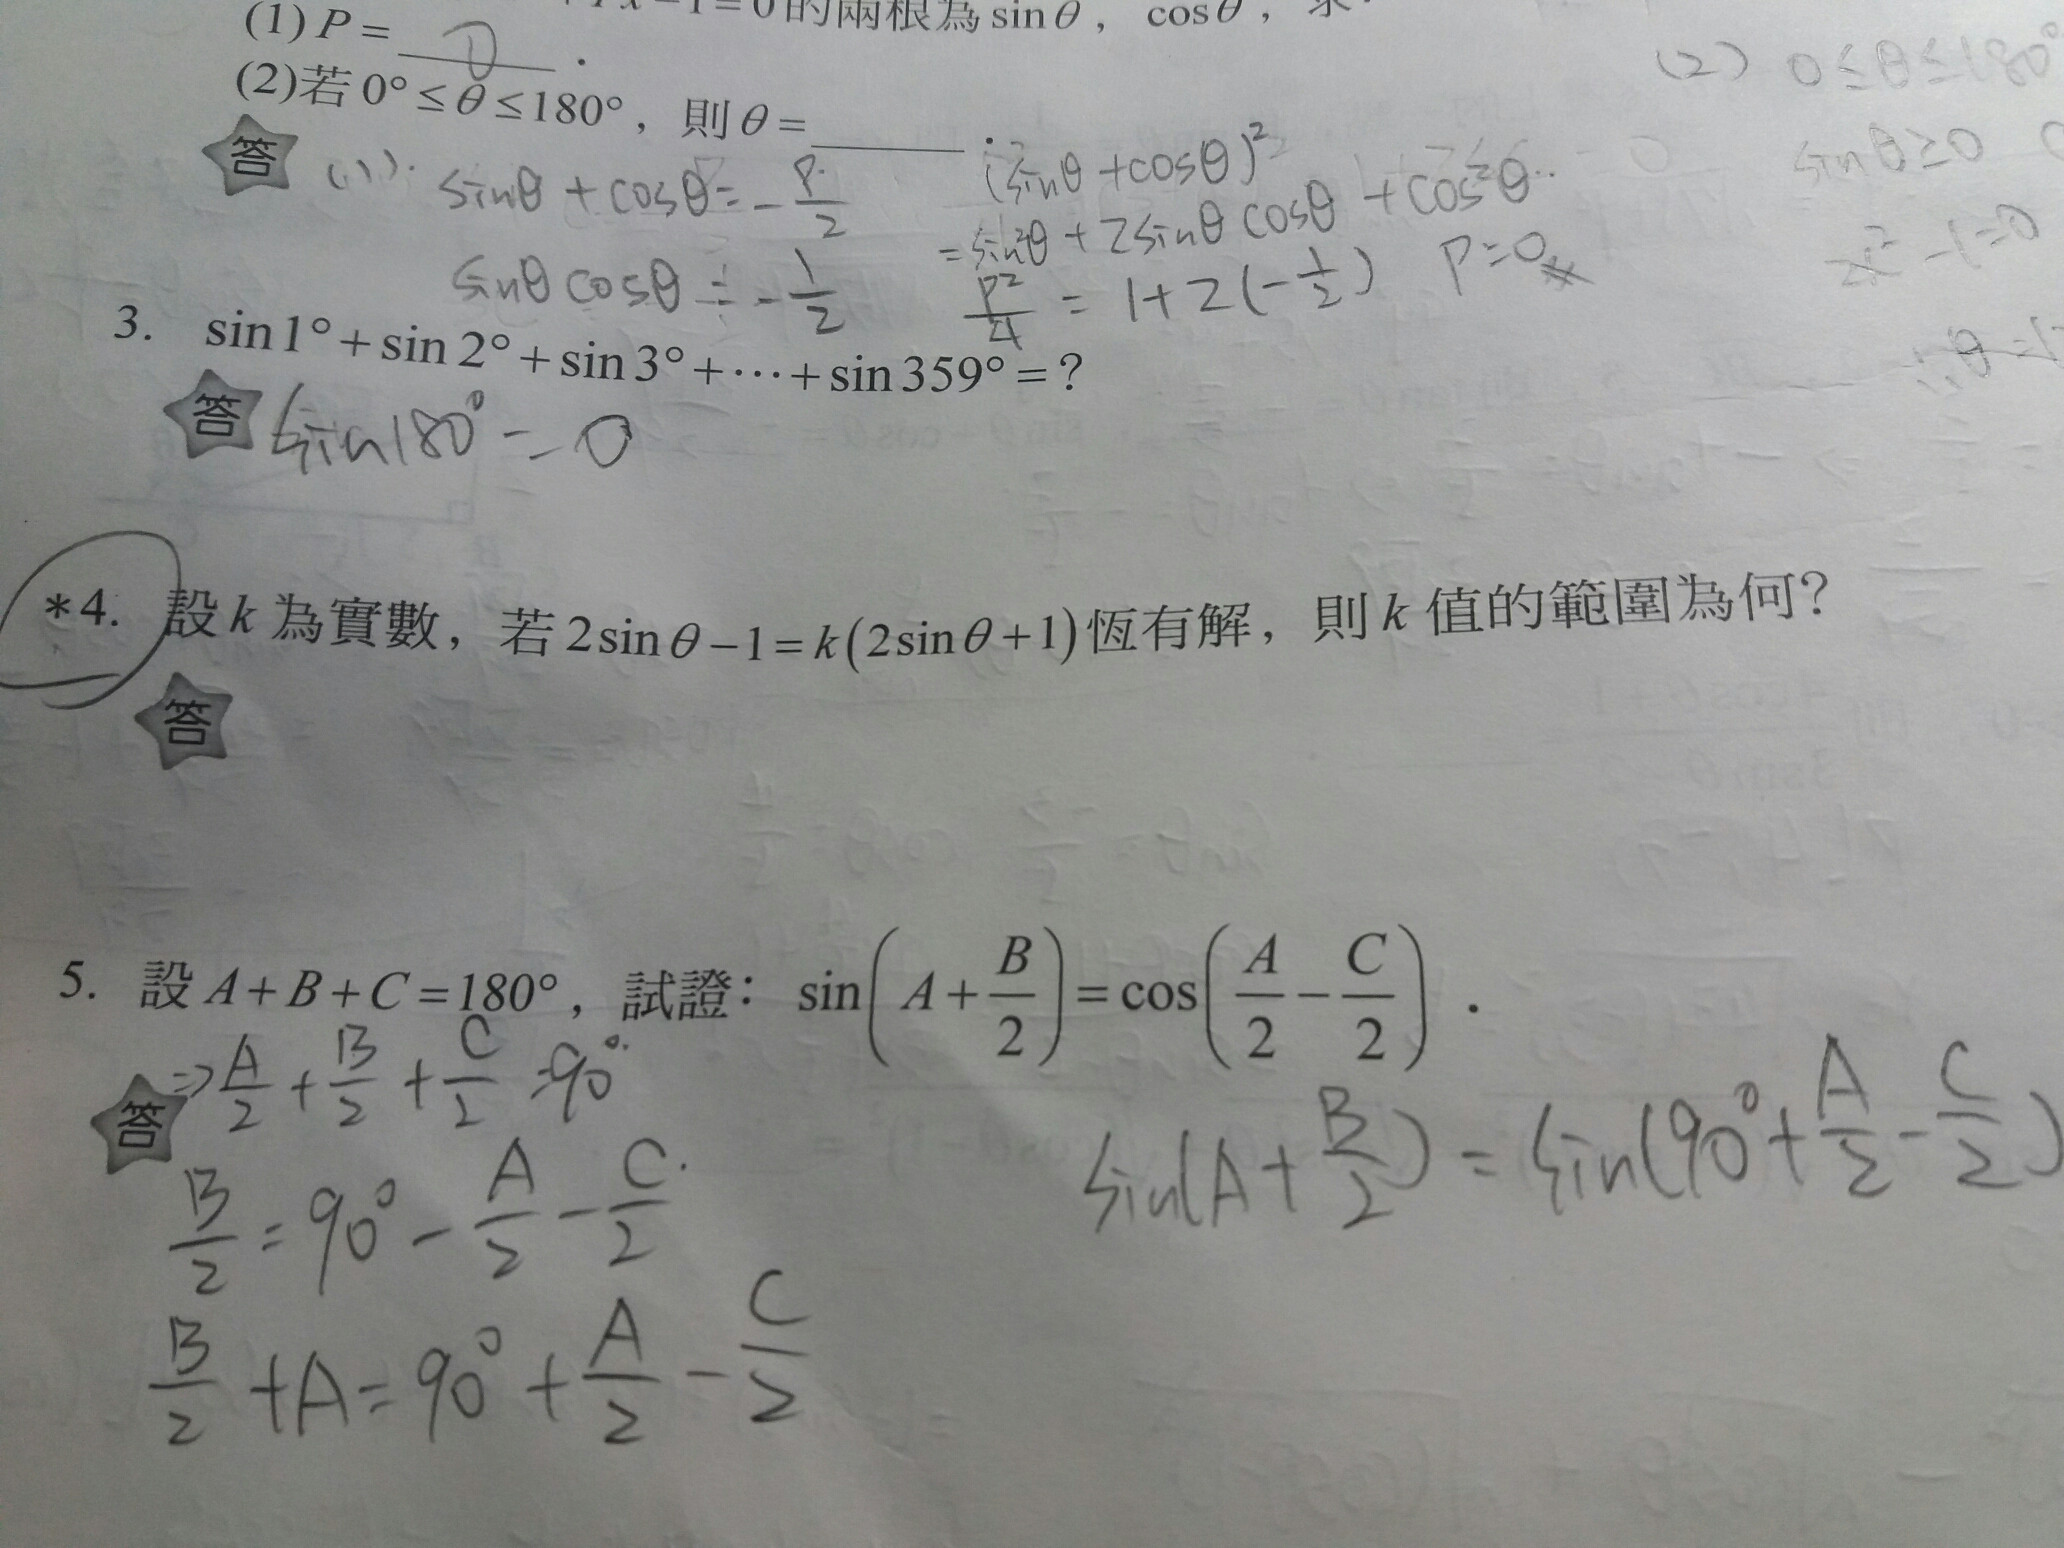 −1=0的兩根為 sinθ，cosθ，求
(1) P= 0 .
(2)若 0°≤θ≤180°，則 θ= .
(2) 0≤θ≤180°
答 (1). sinθ+cosθ=-P/2
(sinθ+cosθ)²
=sin²θ+2sinθcosθ+cos²θ
sinθ≥0
sinθcosθ=-1/2
P²/4=1+2(-1/2) P=0
2x²-1=0
∴θ=1
3. sin1°+sin2°+sin3°+⋯+sin359°=?
答 sin180°=0
*4. 設 k 為實數，若 2sinθ−1=k(2sinθ+1)恆有解，則 k 值的範圍為何?
答
5. 設 A+B+C=180°，試證：sin(A+B/2)=cos(A/2−C/2).
答 ⇒A/2+B/2+C/2=90°
B/2=90°-A/2-C/2
B/2+A=90°+A/2-C/2
sin(A+B/2)=sin(90°+A/2-C/2)